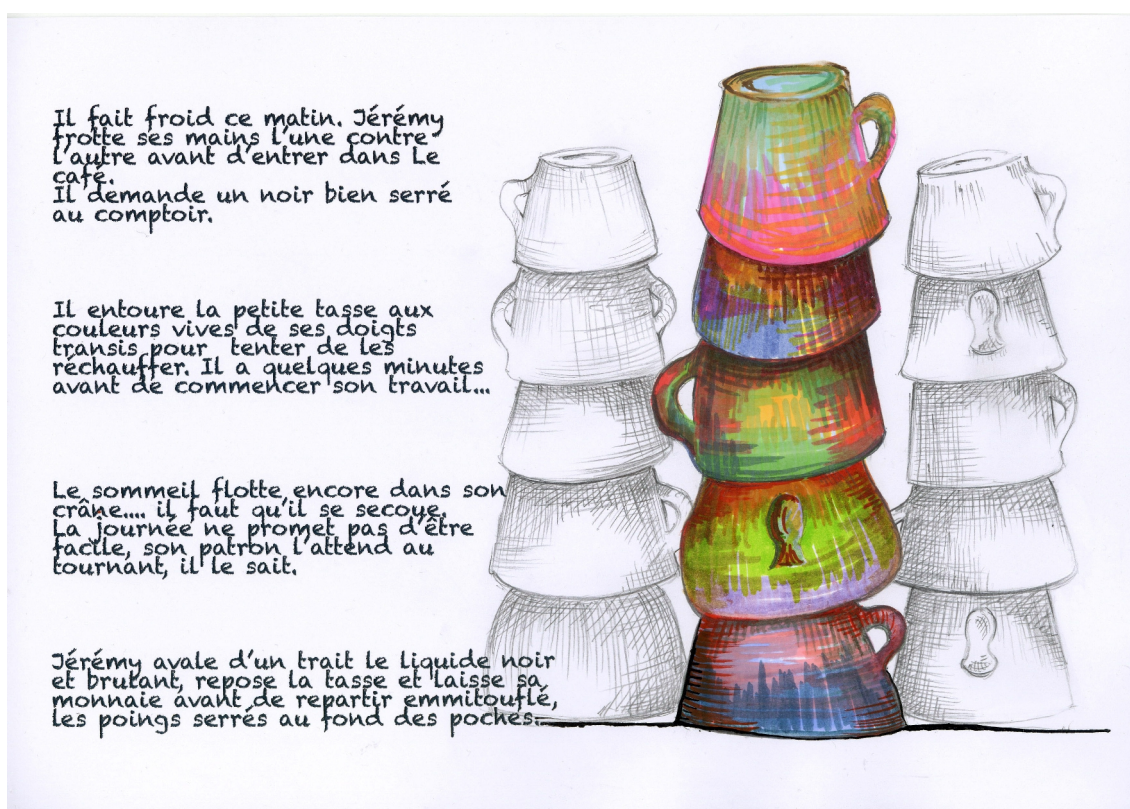 Il fait froid ce matin. Jérémy
frotte ses mains l'une contre
l'autre avant d'entrer dans Le
café.
Il demande un noir bien serré
au comptoir.
Il entoure la petite tasse aux
couleurs vives de ses doigts
transis pour tenter de les
réchauffer. Il a quelques minutes
avant de commencer son travail...
Le sommeil flotte encore dans son
crâne.... il faut qu'il se secoue.
La journée ne promet pas d'être
facile, son patron l'attend au
tournant, il le sait.
Jérémy avale d'un trait le liquide noir
et brulant, repose la tasse et laisse sa
monnaie avant de repartir emmitouflé,
les poings serrés au fond des poches.